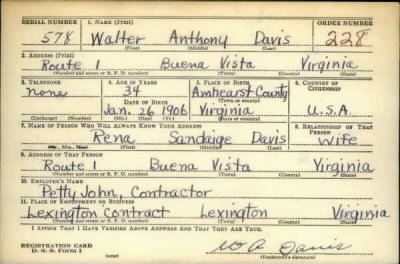 SERIAL NUMBER 1. NAME (Print) ORDER NUMBER
578 Walter Anthony Davis 228
(First) (Middle) (Last)
2. ADDRESS (Print)
Route 1 Buena Vista Virginia
(Number and street or R. F. D. number) (Town) (County) (State)
3. TELEPHONE 4. AGE IN YEARS 5. PLACE OF BIRTH 6. COUNTRY OF CITIZENSHIP
none 34 Amhearst County
DATE OF BIRTH (Town or county)
Jan. 26 1906 Virginia U.S.A.
(Exchange) (Number) (Mo.) (Day) (Yr.) (State or country)
7. NAME OF PERSON WHO WILL ALWAYS KNOW YOUR ADDRESS 8. RELATIONSHIP OF THAT PERSON
Rena Sandaige Davis Wife
(Mr., Mrs., Miss) (First) (Middle) (Last)
9. ADDRESS OF THAT PERSON
Route 1 Buena Vista Virginia
(Number and street or R. F. D. number) (Town) (County) (State)
10. EMPLOYER'S NAME
Petty John, Contractor
11. PLACE OF EMPLOYMENT OR BUSINESS
Lexington Contract Lexington Virginia
(Number and street or R. F. D. number) (Town) (County) (State)
I AFFIRM THAT I HAVE VERIFIED ABOVE ANSWERS AND THAT THEY ARE TRUE.
REGISTRATION CARD
D. S. S. FORM 1 W A Davis
(over) (Registrant's signature)